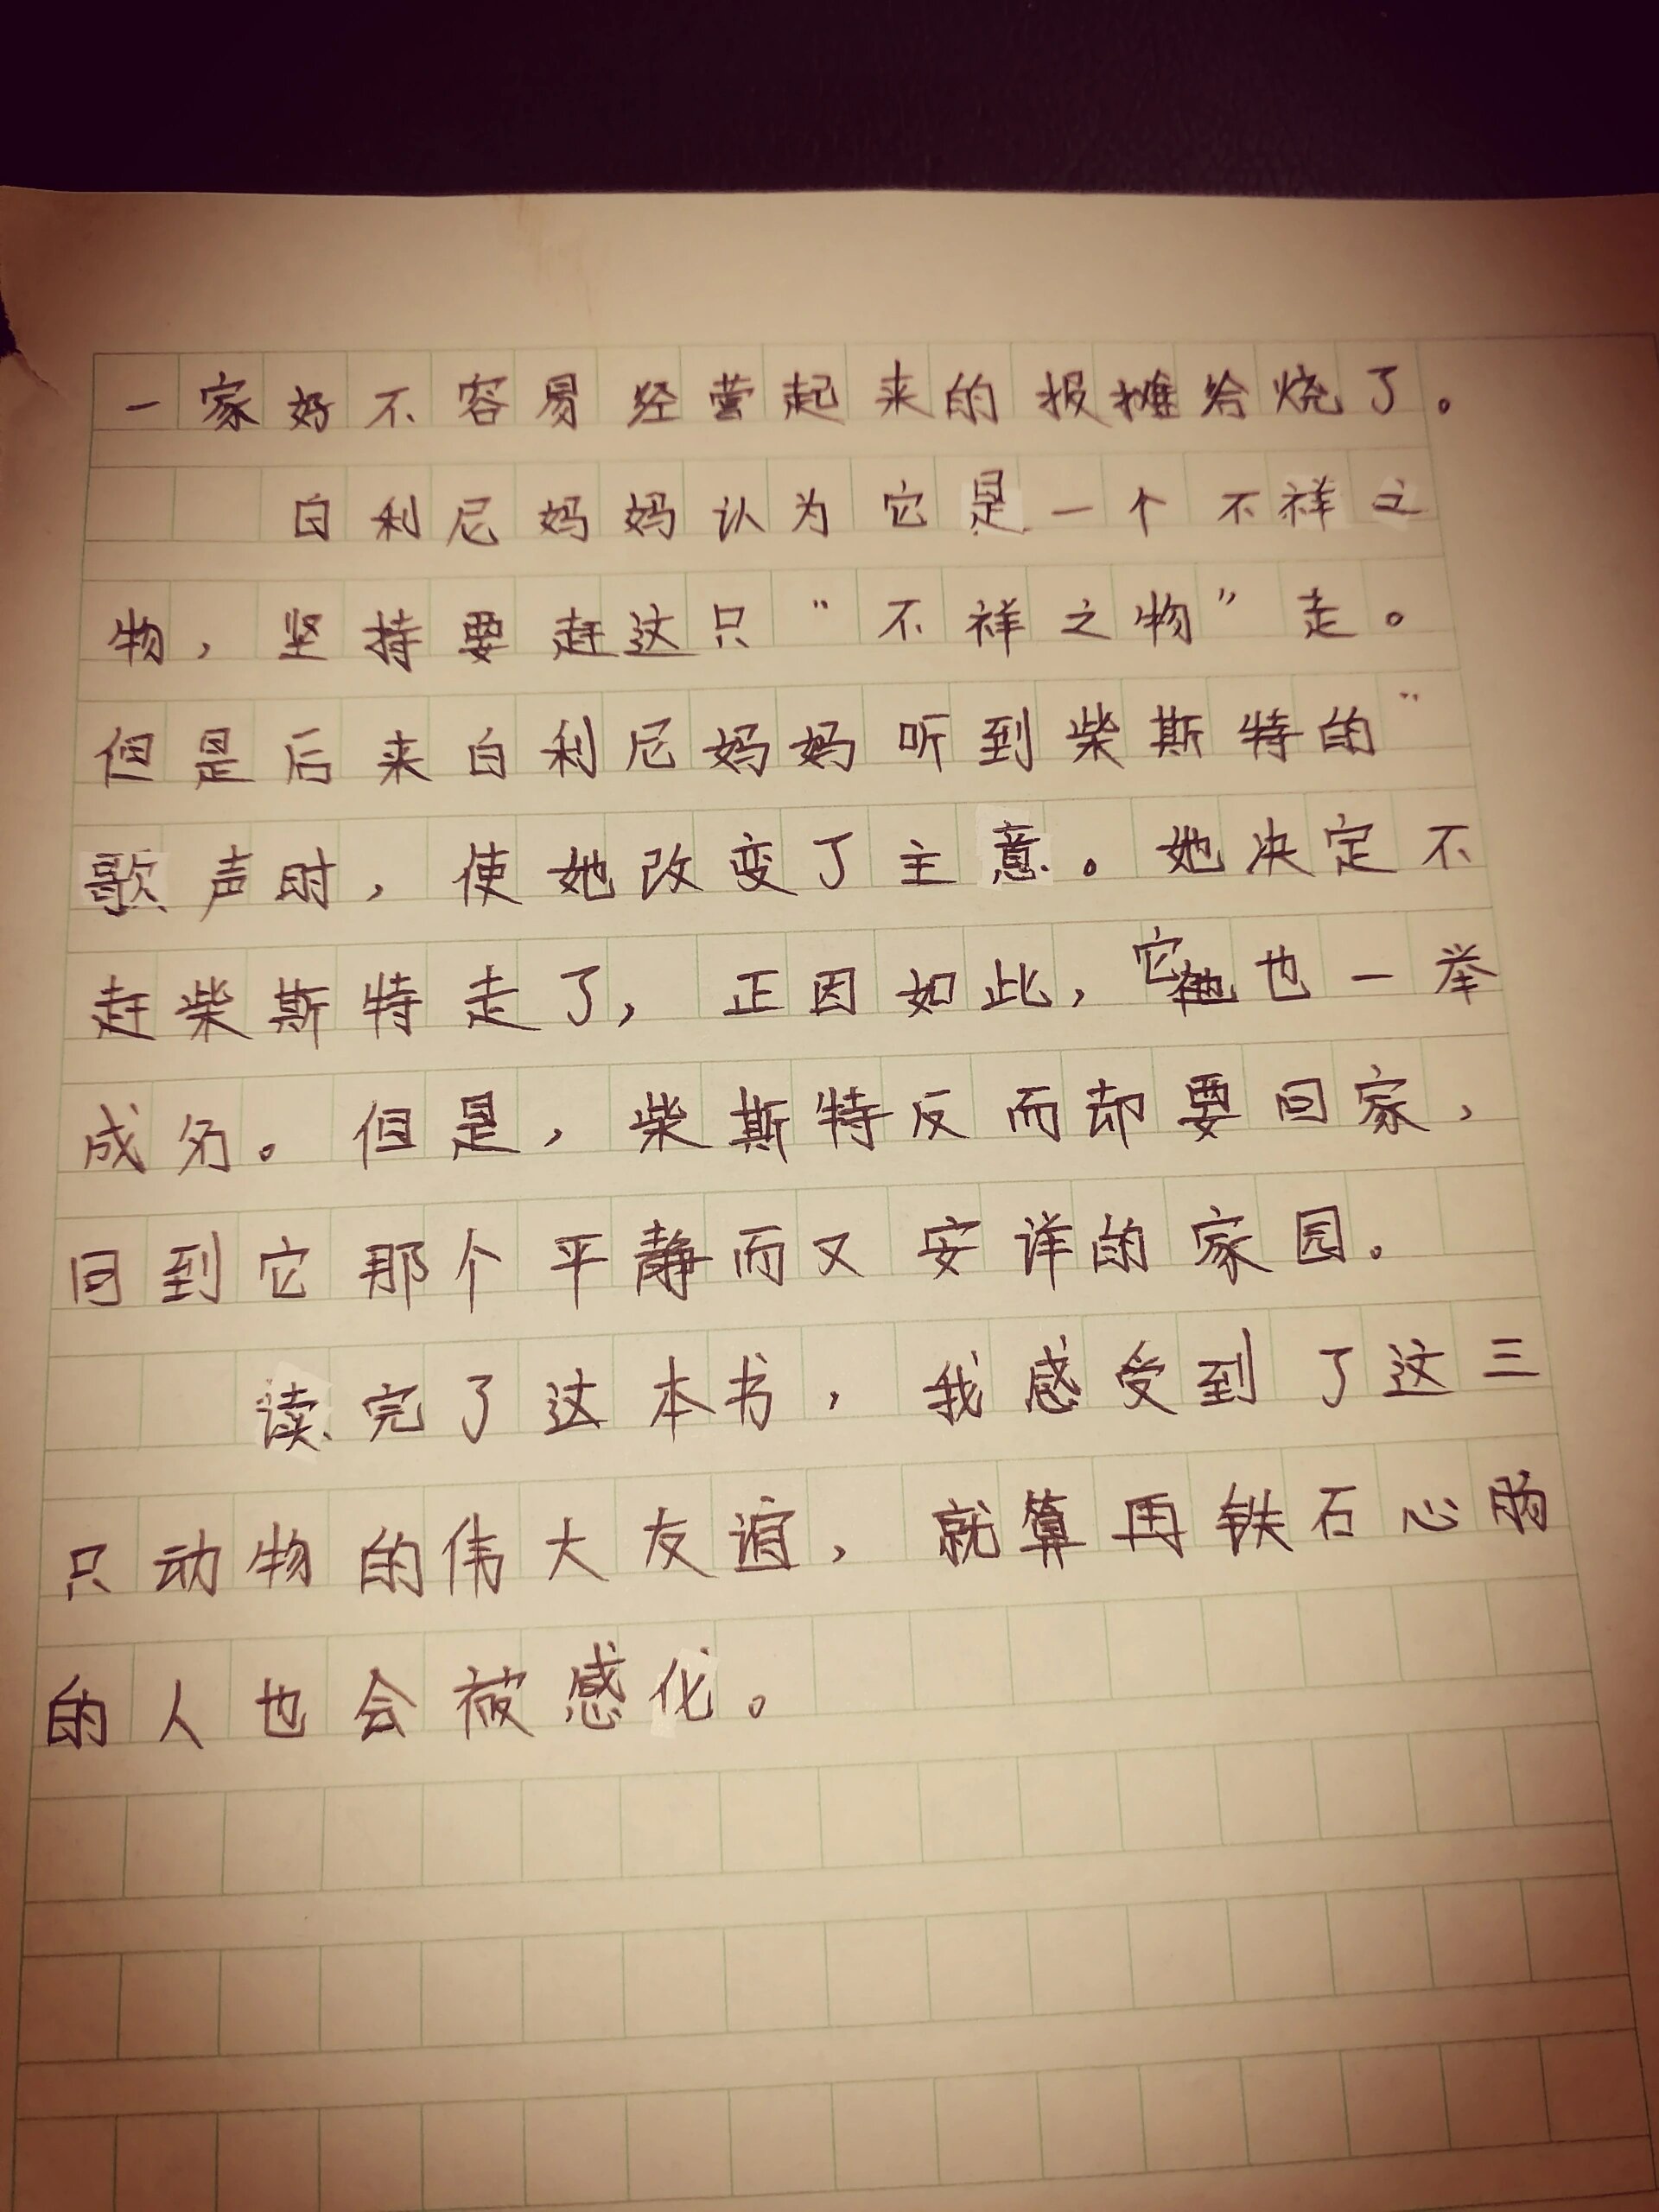 一家好不容易经营起来的报摊给烧了。
白利尼妈妈认为它是一个不祥之
物，坚持要赶这只“不祥之物”走。
但是后来白利尼妈妈听到柴斯特的“
歌声时，使她改变了主意。她决定不
赶柴斯特走了，正因如此，它也一举
成名。但是，柴斯特反而却要回家，
回到它那个平静而又安详的家园。
读完了这本书，我感受到了这三
只动物的伟大友谊，就算再铁石心肠
的人也会被感化。